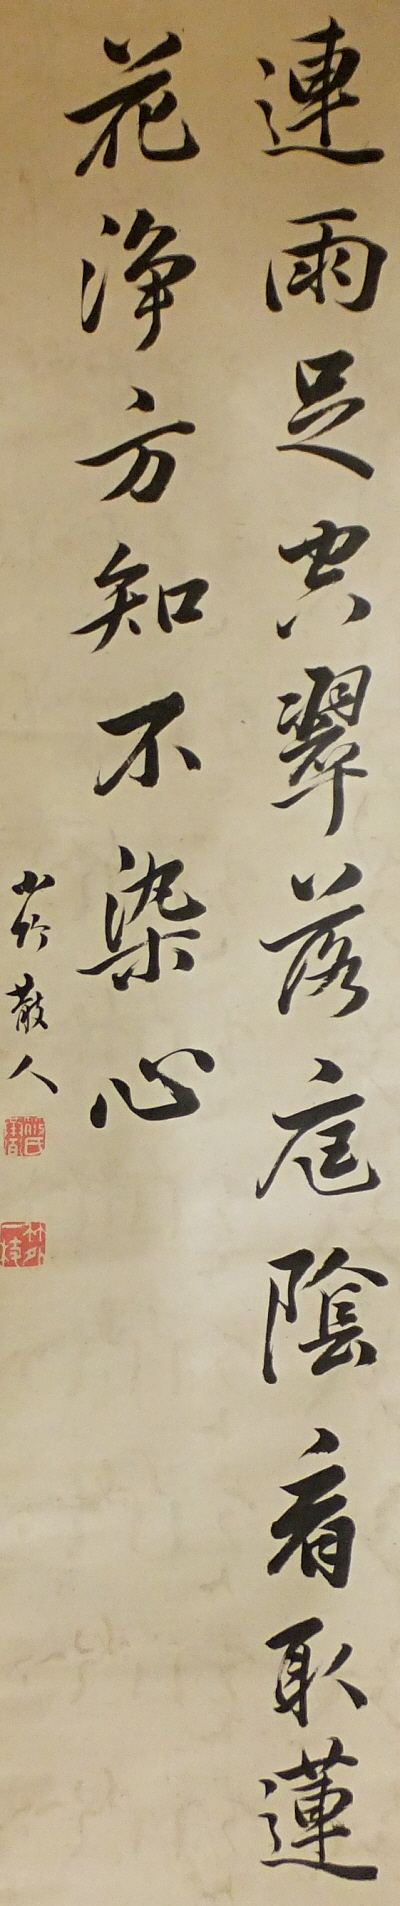 連雨足空翠落庭陰看取蓮
花淨方知不染心
小竹散人